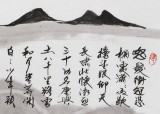 怒髮衝冠憑
欄處瀟瀟雨歇
抬望眼仰天
長嘯壯懷激烈
三十功名塵與
土八千里路雲
和月莫等閒
白了少年頭